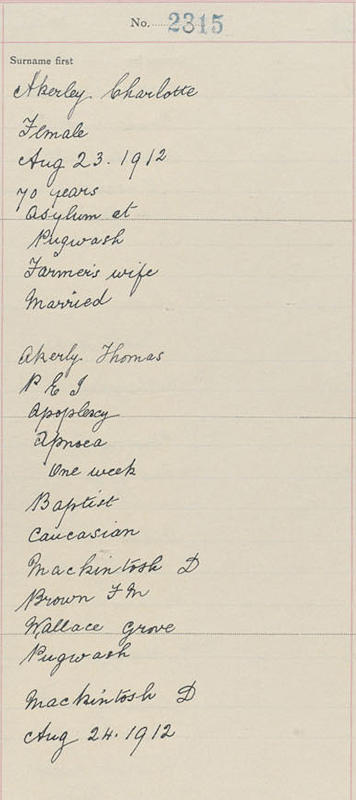 No. 2315
Surname first
Akerley. Charlotte
Female
Aug 23. 1912
70 years
Asylum at
Pugwash
Farmer's wife
Married
Akerly. Thomas
P E I
Apoplexy
Apnoea
One week
Baptist
Caucasian
Mackintosh D
Brown F M
Wallace Grove
Pugwash
Mackintosh D
Aug 24. 1912